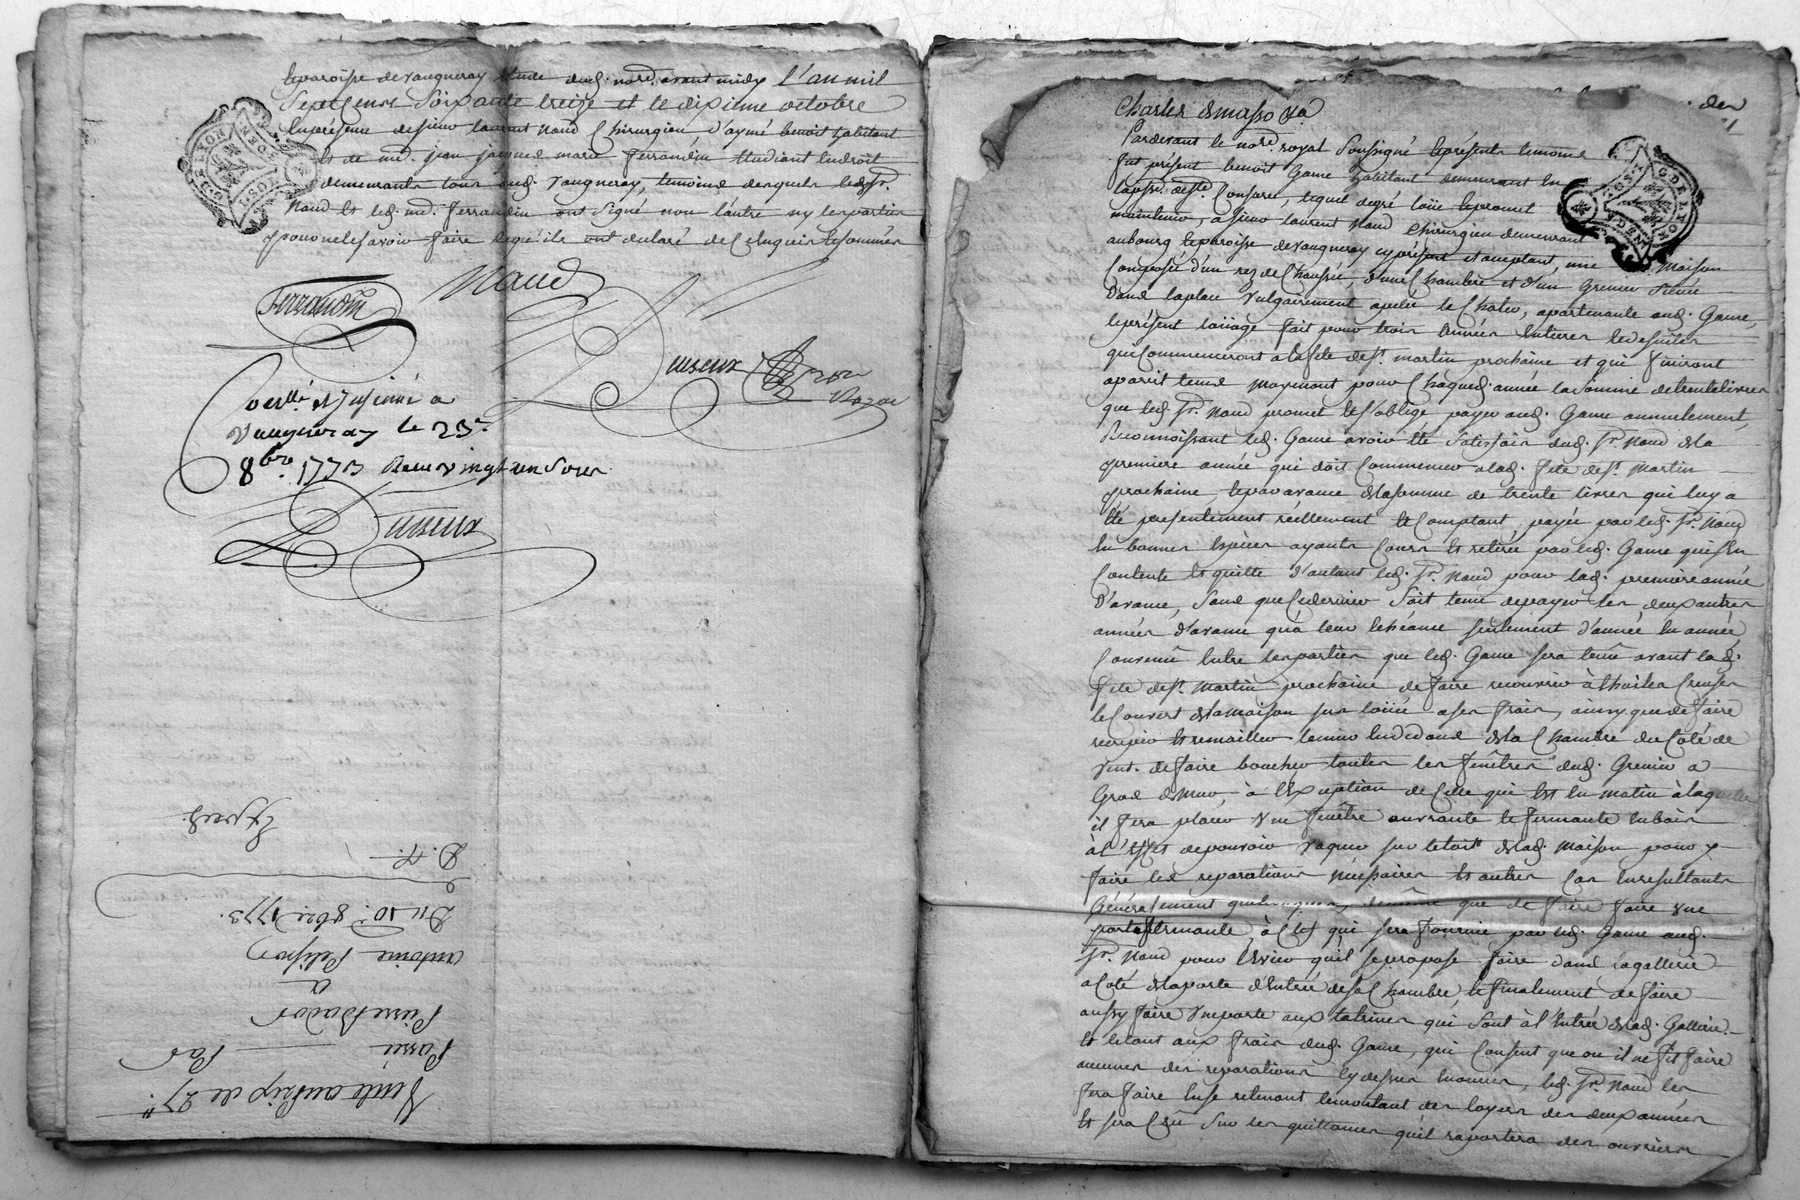 la paroisse de vaugneray étude dud. nore. avant midy l'an mil
sept Cents soixante treize et le dixieme octobre
En présence de sieur laurent Naud Chirurgien, d'aymé benoit habitant
Et de me. jean jacques marie ferrandin Etudiant En droit
demeurants tous aud. vaugneray, temoins desquels led. Sr.
Naud Et led. me. ferrandin ont signé non l'autre ny les parties
pour ne le savoir faire ainsi qu'ils ont declaré de Ce Enquis Et sommés
Naud
ferrandin
Duseux nore
Royal
Conllé et Insinué a
Vaugneray le 23e.
8bre 1773 Reçu vingt un sous
Duseux
Vente au prix de 27ll.
Passée Par
Pierre Bador
a
antoine Pelisson
Du 10e. 8bre. 1773.
D. N.
Exped.
GDE LYON
GDELYON
MDEN
Charles
Pardevant le nore. royal soussigné En présence des temoins
fut présent benoit Game habitant demeurant En
la psse. de St. Consorce, lequel de gré loüe Et promet
maintenir, a sieur laurent Naud Chirurgien demeurant
au bourg Et paroisse de vaugneray cy présent et acceptant, une Maison
Composée d'un rez de Chaussée, d'une Chambre et d'un Grenier située
dans la place vulgairement apelée le Chater, apartenante aud. Game,
le présent loüage fait pour trois années Entieres Et de suites
qui Commenceront a la fete de St. martin prochaine et qui finiront
a pareil tems Moyenant pour Chaque d. année la somme de trente livres
que led. Sr. Naud promet Et s'oblige payer aud. Game annuelement,
Reconnoissant led. Game avoir été satisfait dud. Sr. Naud de la
premiere année qui doit Commencer a lad. fete de St. Martin
prochaine, Et par avance de la somme de trente livres qui luy a
été presentement réellement Et Comptant, payée par led. Sr. Naud
En bonnes Especes ayants Cours Et retirée par led. Game qui s'en
Contente Et quitte d'autant led. Sr. Naud pour lad. premiere année
d'avance, sans que Ce dernier soit tenu de payer les deux autres
années d'avance qu'à leur Echeance seulement d'année En année,
Convenu Entre les parties que led. Game sera tenû avant lad.
fete de St. Martin prochaine de faire recouvrir à thuiles Creuses
le Couvert de la maison sus loüée a ses frais, ainsy que de faire
recrepir Et remailler le mur En dedans de la Chambre du Coté de
vent. de faire boucher toutes les fenêtres dud. Grenier a
Gros de mur, à l'Exception de Celle qui Est En matin à laquelle
il fera placer une fenêtre ouvrante Et fermante En bois
à l'Effet de pouvoir vaquer sur le toit de lad. Maison pour y
faire les reparations nécessaires Et autres Cas En resultants
Généralement quelconques, de même que de faire faire une
porte fermante à Clef qui sera fournie par led. Game aud.
Sr. Naud pour l'Evier qu'il se propose faire dans la gallerie
a Coté de la porte d'Entrée de sa Chambre, Et finalement de faire
aussy faire une porte aux latrines qui sont à l'Entrée de lad. Gallerie.
Et le tout aux frais dud. Game, qui Consent que ou il ne fit faire
aucunes des reparations Cy dessus Enoncées, led. Sr. Naud les
fera faire En se retenant le montant des loyers des deux années
Et sera Crû sur les quittances qu'il raportera des ouvriers